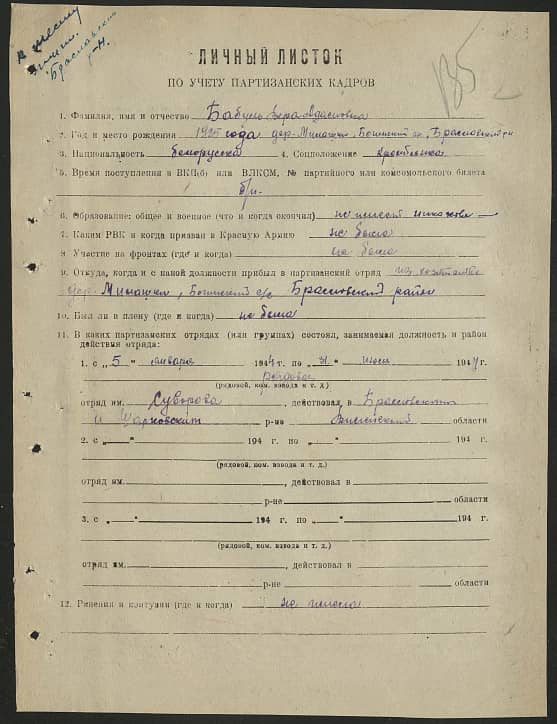 Браславский
р-н.
185
ЛИЧНЫЙ ЛИСТОК
ПО УЧЕТУ ПАРТИЗАНСКИХ КАДРОВ
1. Фамилия, имя и отчество Бабуль Вера Адамовна
2. Год и место рождения 1925 года дер. Минашки, Браславский р-н
3. Национальность белоруска 4. Соцположение крестьянка
5. Время поступления в ВКП(б) или ВЛКСМ, № партийного или комсомольского билета
б/п.
6. Образование: общее и военное (что и когда окончил)
7. Каким РВК и когда призван в Красную Армию не была
8. Участие на фронтах (где и когда) не была
9. Откуда, когда и с какой должности прибыл в партизанский отряд из хозяйства
дер. Минашки, с/с Браславский район
10. Был ли в плену (где и когда) не была
11. В каких партизанских отрядах (или группах) состоял, занимаемая должность и район
действия отряда:
1. с „5" января 1944 г. по „31" 1944 г.
рядовая
(рядовой, ком. взвода и т. д.)
отряд им. Суворова, действовал в Браславском
и р-не Вилейской области
2. с „ " 194 г. по „ " 194 г.
(рядовой, ком. взвода и т. д.)
отряд им. , действовал в
р-не области
3. с „ " 194 г. по „ " 194 г.
(рядовой, ком. взвода и т. д.)
отряд им. , действовал в
р-не области
12. Ранения и контузии (где и когда) не имела